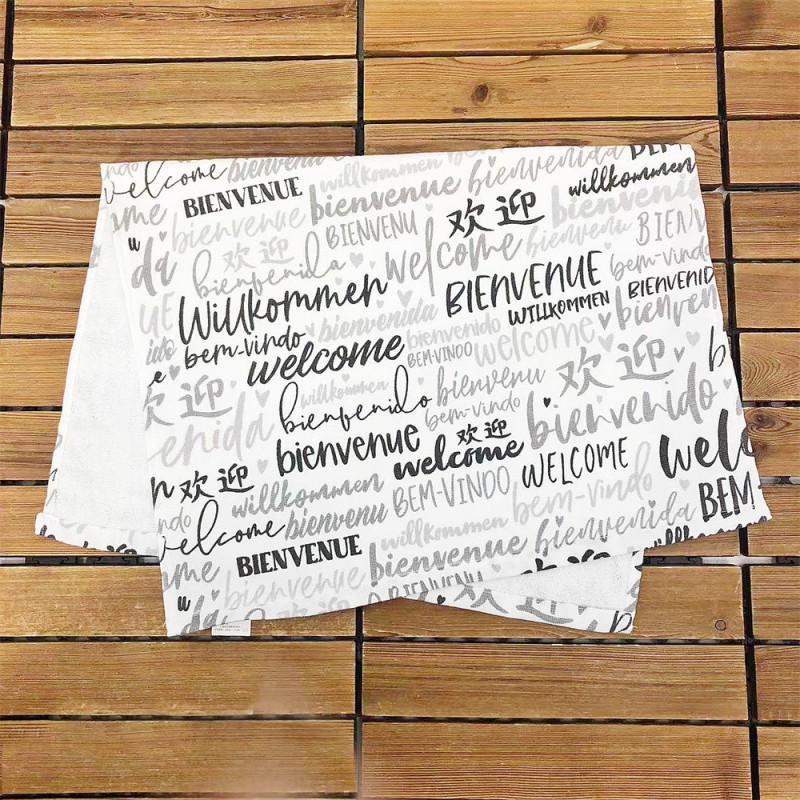 welcome bienvenu willkommen bienvenida
BIENVENUE bienvenue willkommen
bienvenue BIENVENU 欢迎
欢迎 bienvenida welcome bienvenu
Willkommen BIENVENUE bem-vindo
bem-vindo bienvenida WILLKOMMEN
welcome bienvenido BEM-VINDO welcome
欢迎 willkommen bienvenu 欢迎
bienvenido bem-vindo bienvenido
bienvenue 欢迎
欢迎 welcome WELCOME
willkommen BEM-VINDO bem-vindo
welcome bienvenu willkommen bienvenida
BIENVENUE bienvenue
bienvenue BIENVENU 欢迎